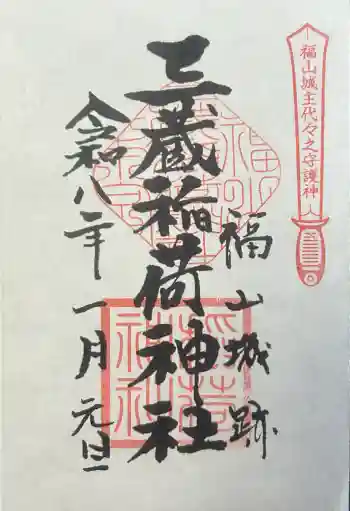 福山城主代々之守護神
福山城跡
三蔵稲荷神社
令和八年 一月 元旦
稲荷
神社